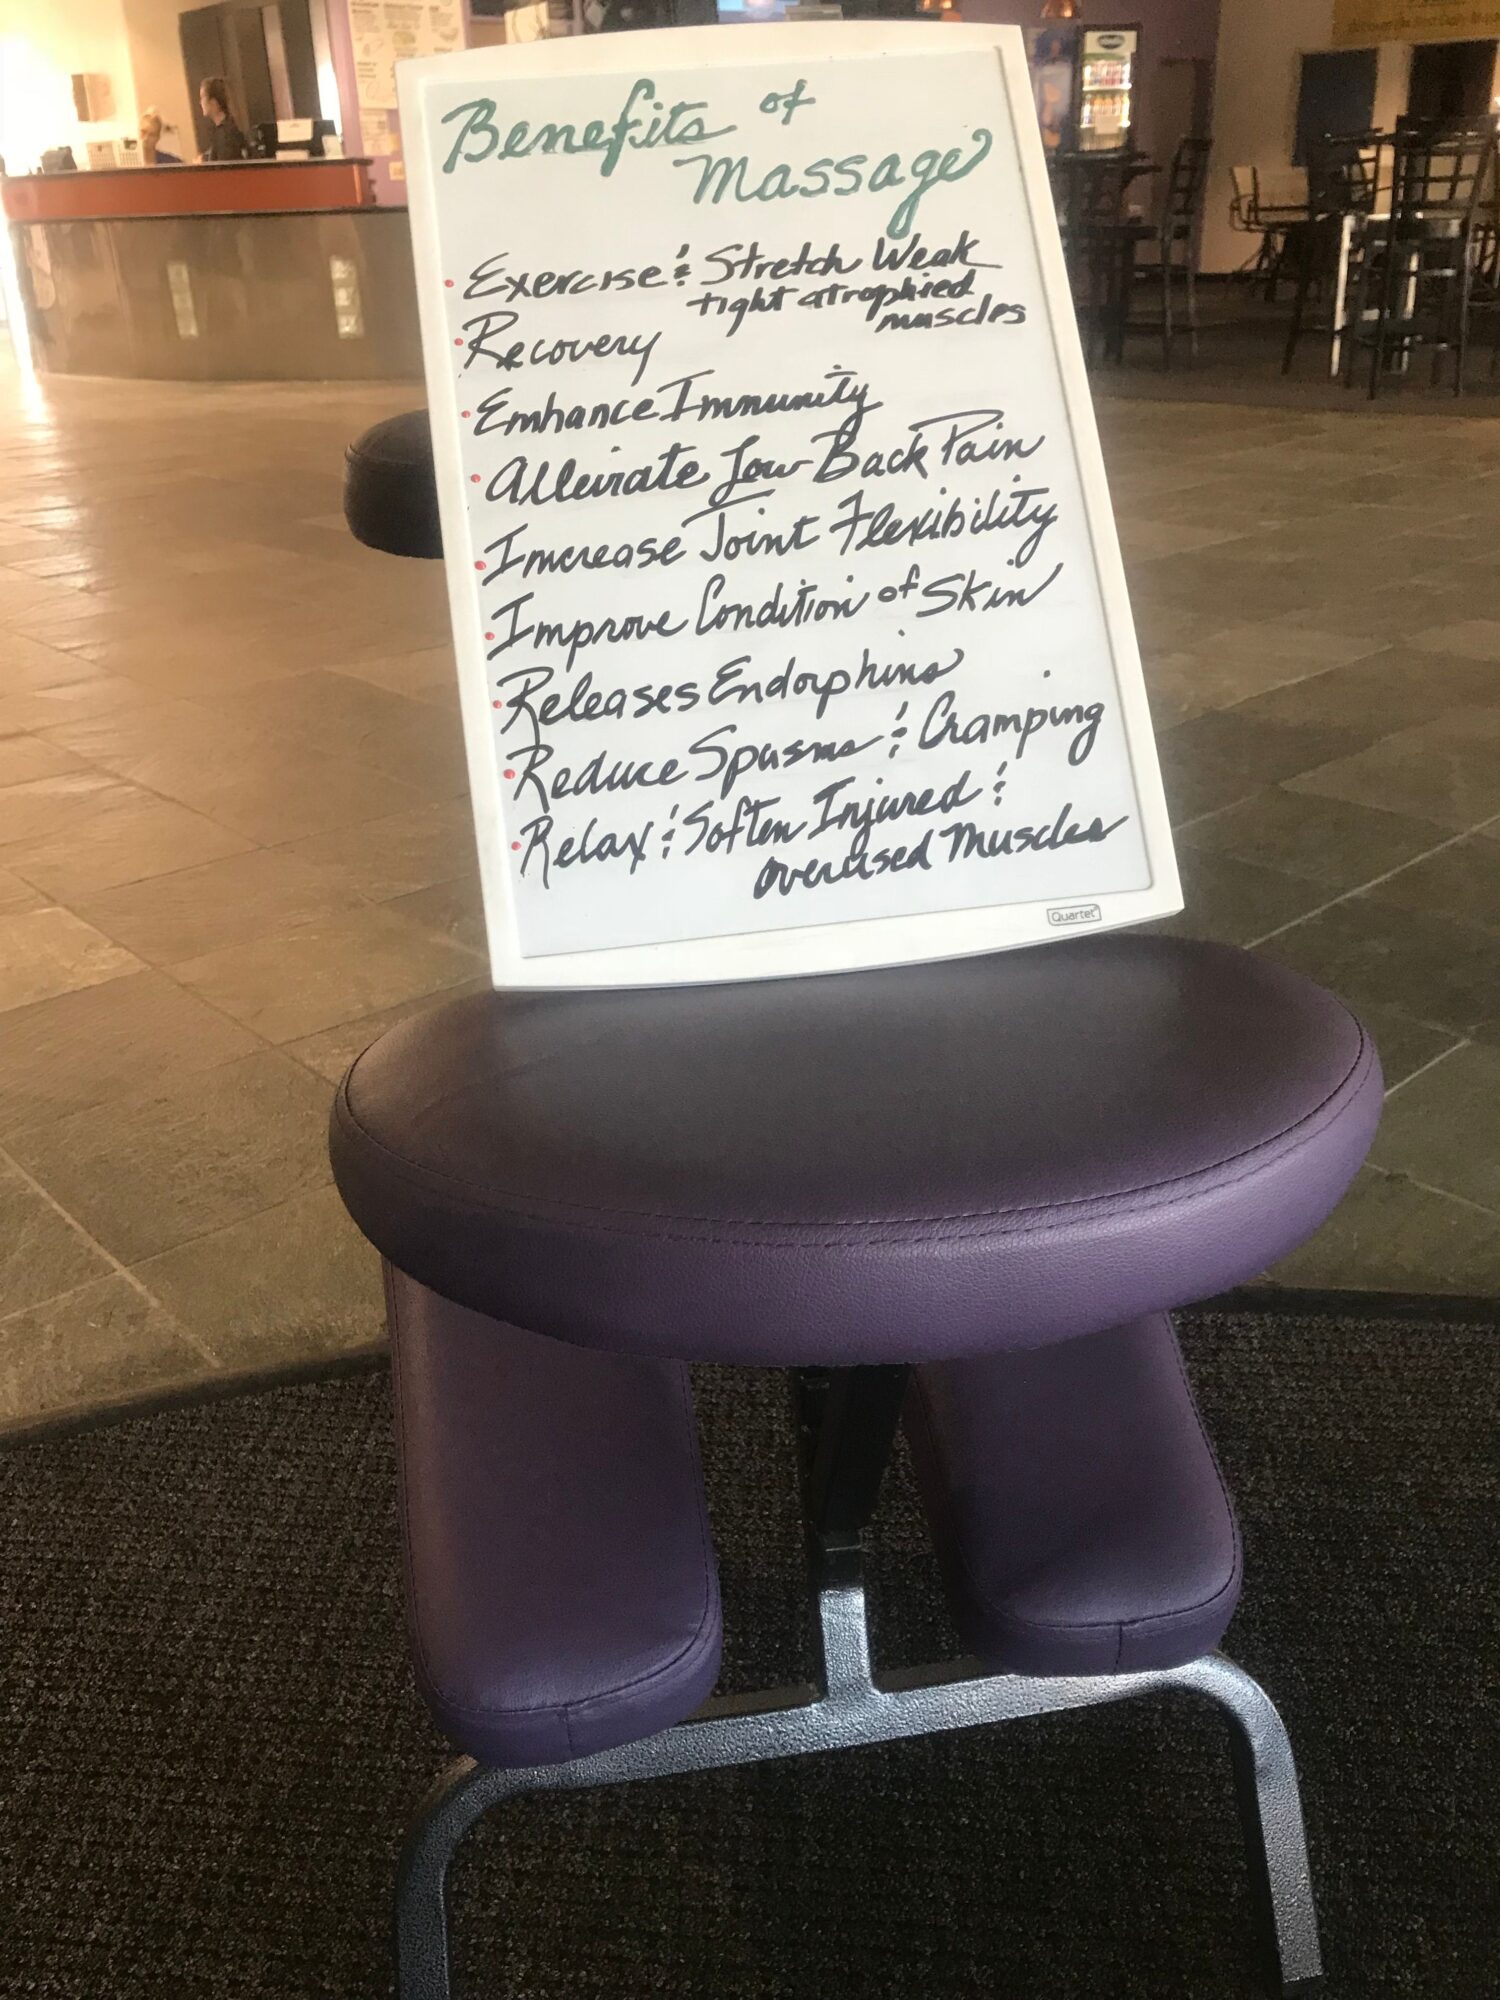 Benefits of
Massage
• Exercise & Stretch Weak
tight atrophied
muscles
• Recovery
• Enhance Immunity
• Alleivate Low-Back Pain
• Increase Joint Flexibility
• Improve Condition of Skin
• Releases Endorphins
• Reduce Spasms & Cramping
• Relax & Soften Injured &
overused Muscles
Quartet